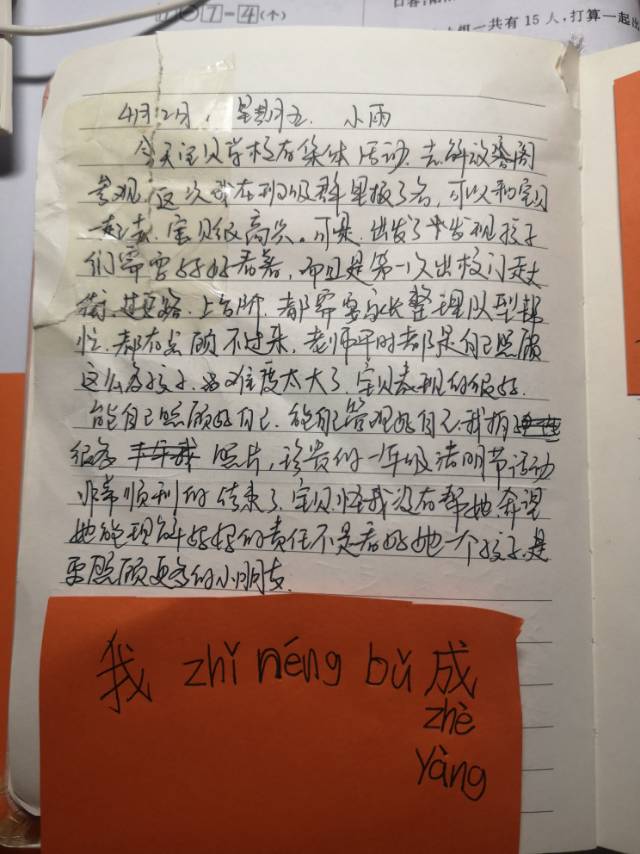 7-4(个)
组一共有15人,打算一起出
4月2日,星期五. 小雨
今天宝贝学校有集体活动.去解放阁
参观.这次我在班级群里报了名,可以和宝贝
一起去.宝贝很高兴。可是.出发了才发现孩子
们需要好好看着,而且是第一次出校门走大
街.过马路.上台阶.都需要家长整理队型帮
忙.都有点顾不过来.老师平时都是自己照顾
这么多孩子.难度太大了.宝贝表现的很好.
能自己照顾好自己.能自己管理好自己.我拍
很多 照片,珍贵的一年级清明节活动
非常顺利的结束了.宝贝怪我没有帮她.希望
她能理解妈妈的责任不是看好她一个孩子.是
要照顾更多的小朋友.
我 zhǐ néng bǔ 成
zhè
yàng